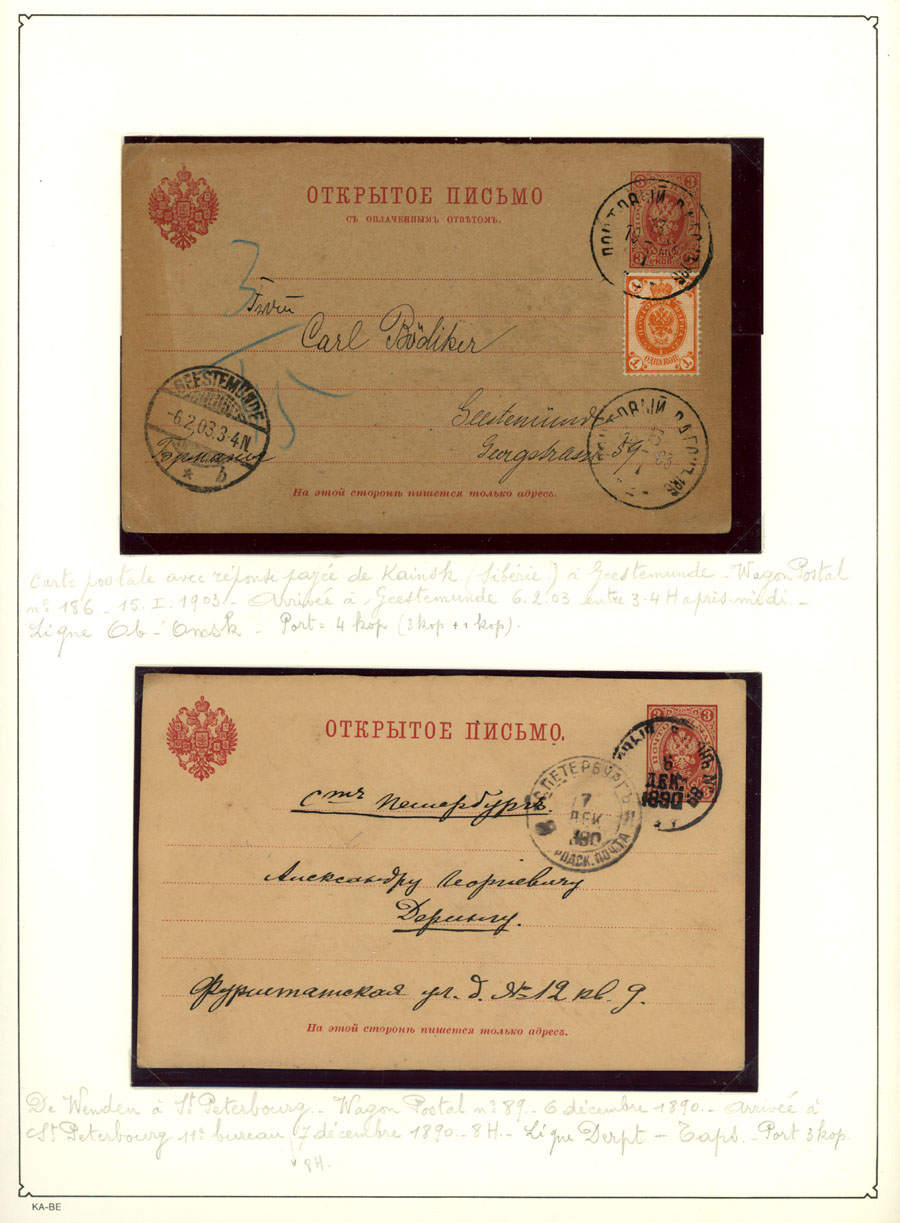 ОТКРЫТОЕ ПИСЬМО
СЪ ОПЛАЧЕННЫМЪ ОТВѢТОМЪ.
3
3
3
3
ПОЧТОВЫЙ ВАГОНЪ
19
1
1
1
ОДНА КОП.
1
1
3
Carl Bödiker
GEESTEMÜNDE
-6.2.03.3-4N
* b
Geestemünde
Georgstrasse 59
Германія
ПОЧТОВЫЙ ВАГОНЪ
На этой сторонѣ пишется только адресъ.
Carte postale avec réponse payée de Kainsk (Sibérie) à Geestemunde - Wagon Postal
n° 186 - 15.I.1903 - Arrivée à Geestemunde 6.2.03 entre 3-4H après-midi -
Ligne Ob - Omsk - Port = 4 kop (3 kop + 1 kop).
ОТКРЫТОЕ ПИСЬМО.
3
3
3
6
ДЕК.
1890
С.ПЕТЕРБУРГЪ
7
ДЕК
1890
ГОРДСК. ПОЧТА
11
С тъ Петербургъ
Александру Георгиевичу
Дерингу.
Фурштатская ул. д. № 12 кв. 9.
На этой сторонѣ пишется только адресъ.
De Wenden à St Peterbourg - Wagon Postal n° 89 - 6 décembre 1890 - Arrivée à
St Peterbourg 11e bureau 7 décembre 1890 - 8H - Ligne Derpt - Taps - Port 3 kop.
8H.
KA-BE